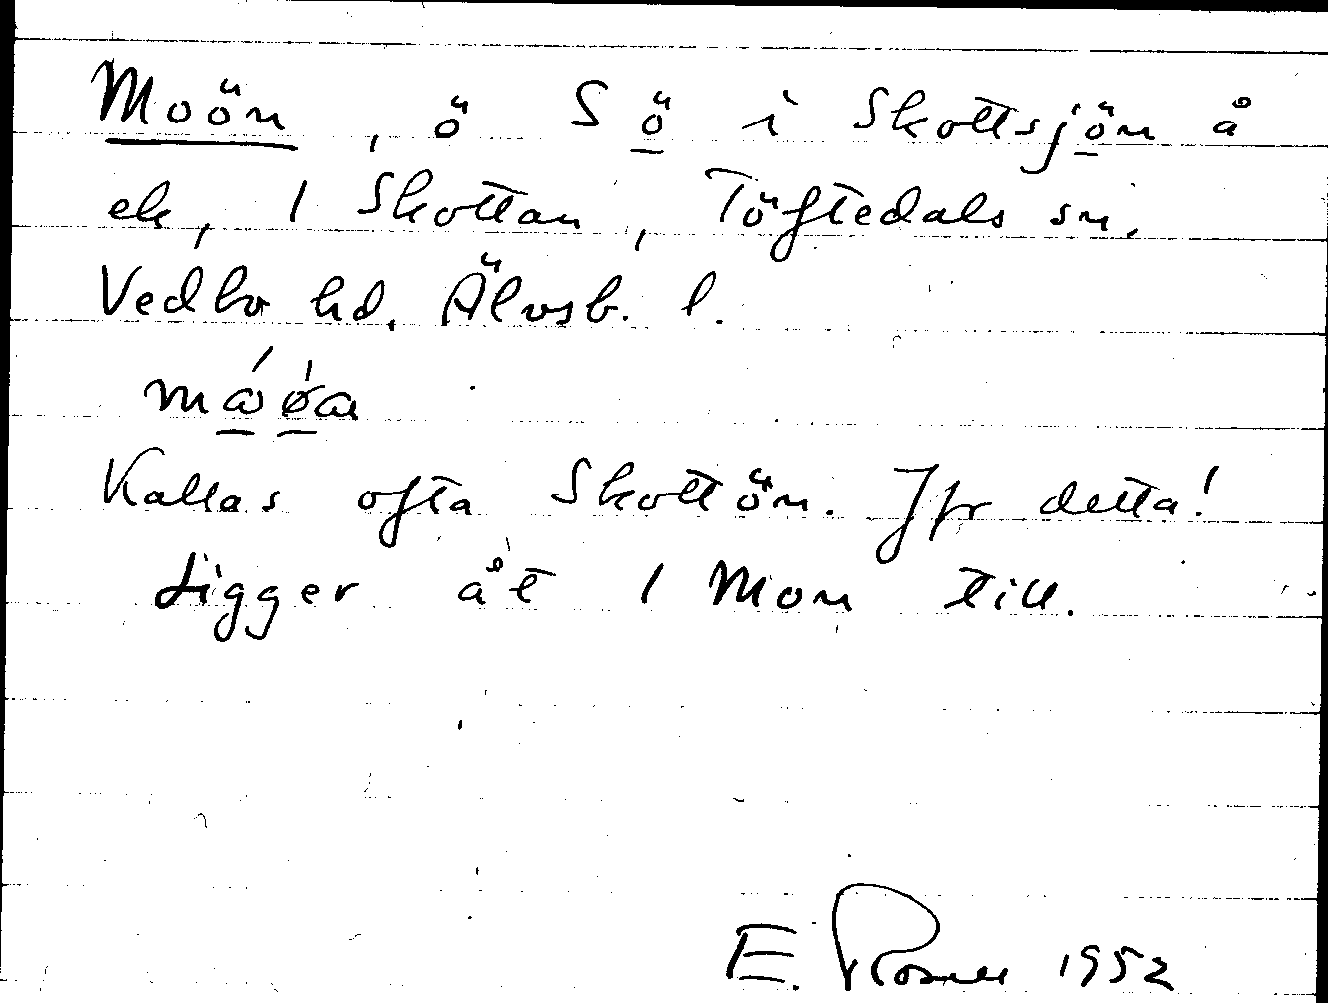 Moön, ö Sö i Skottsjön å
ek, 1 Skottan, Töftedals sn.
Vedbo hd. Älvsb. l.
Kallas ofta Skottön. Jfr detta!
Ligger åt 1 Mon till.
E. 1952